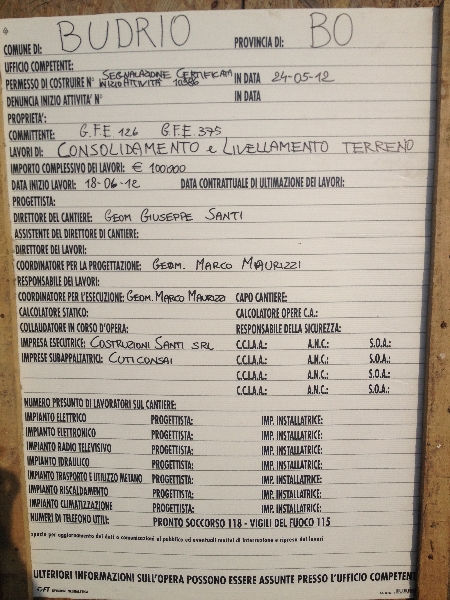 COMUNE DI: BUDRIO PROVINCIA DI: BO
UFFICIO COMPETENTE:
PERMESSO DI COSTRUIRE N° SEGNALAZIONE CERTIFICATA INIZIO ATTIVITA' 10586 IN DATA 24-05-12
DENUNCIA INIZIO ATTIVITA' N° IN DATA
PROPRIETA':
COMMITTENTE: G.F.E 126 G.F.E. 375
LAVORI DI: CONSOLIDAMENTO e LIVELLAMENTO TERRENO
IMPORTO COMPLESSIVO DEI LAVORI: € 100.000
DATA INIZIO LAVORI: 18-06-12 DATA CONTRATTUALE DI ULTIMAZIONE DEI LAVORI:
PROGETTISTA:
DIRETTORE DEL CANTIERE: GEOM GIUSEPPE SANTI
ASSISTENTE DEL DIRETTORE DI CANTIERE:
DIRETTORE DEI LAVORI:
COORDINATORE PER LA PROGETTAZIONE: GEOM. MARCO MAURIZZI
RESPONSABILE DEI LAVORI:
COORDINATORE PER L'ESECUZIONE: GEOM. MARCO MAURIZZI CAPO CANTIERE:
CALCOLATORE STATICO: CALCOLATORE OPERE C.A.:
COLLAUDATORE IN CORSO D'OPERA: RESPONSABILE DELLA SICUREZZA:
IMPRESA ESECUTRICE: COSTRUZIONI SANTI SRL C.C.I.A.A.: A.N.C.: S.O.A.:
IMPRESE SUBAPPALTATRICI: CUTI CONSAI C.C.I.A.A.: A.N.C.: S.O.A.:
C.C.I.A.A.: A.N.C.: S.O.A.:
C.C.I.A.A.: A.N.C.: S.O.A.:
NUMERO PRESUNTO DI LAVORATORI SUL CANTIERE:
IMPIANTO ELETTRICO PROGETTISTA: IMP. INSTALLATRICE:
IMPIANTO ELETTRONICO PROGETTISTA: IMP. INSTALLATRICE:
IMPIANTO RADIO TELEVISIVO PROGETTISTA: IMP. INSTALLATRICE:
IMPIANTO IDRAULICO PROGETTISTA: IMP. INSTALLATRICE:
IMPIANTO TRASPORTO E UTILIZZO METANO PROGETTISTA: IMP. INSTALLATRICE:
IMPIANTO RISCALDAMENTO PROGETTISTA: IMP. INSTALLATRICE:
IMPIANTO CLIMATIZZAZIONE PROGETTISTA: IMP. INSTALLATRICE:
NUMERI DI TELEFONO UTILI: PRONTO SOCCORSO 118 - VIGILI DEL FUOCO 115
spazio per aggiornamento dei dati o comunicazioni al pubblico ed eventuali motivi di interruzione e ripresa dei lavori
ULTERIORI INFORMAZIONI SULL'OPERA POSSONO ESSERE ASSUNTE PRESSO L'UFFICIO COMPETEN